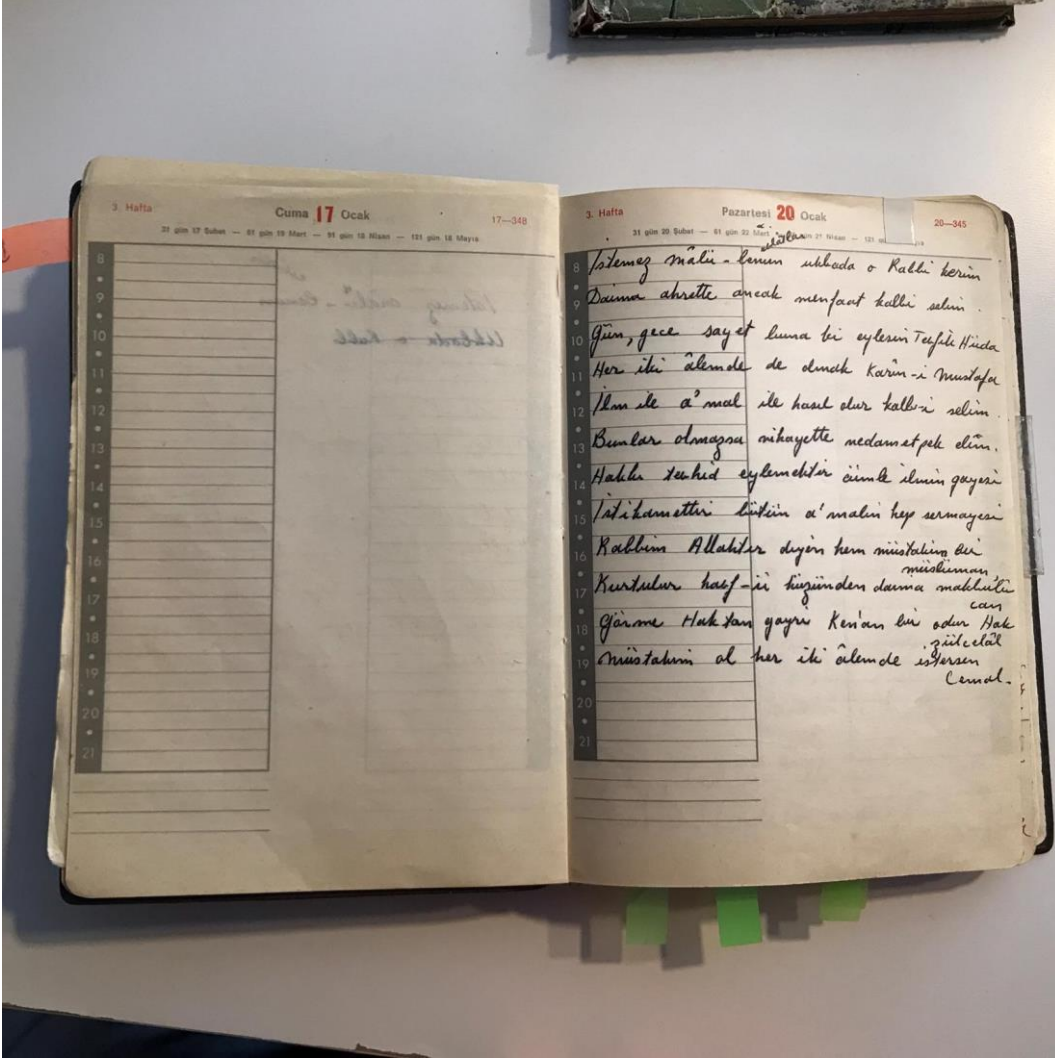 3. Hafta
Cuma 17 Ocak
17—348
31 gün 17 Şubat — 61 gün 19 Mart — 91 gün 18 Nisan — 121 gün 18 Mayıs
8
9
10
11
12
13
14
15
16
17
18
19
20
21
3. Hafta
Pazartesi 20 Ocak
20—345
31 gün 20 Şubat — 61 gün 22 Mart gün 21 Nisan — 121
8 İstemez mâlü - benun ukbada o Rabbi kerim
9 Daima ahrette ancak menfaat kalbi selim.
10 Gün, gece say et buna bir eylesin Tevfik Hüda
11 Her iki âlemde de olmak Karîn-i Mustafa
12 İlm ile a'mal ile hasıl olur kalb-i selim.
13 Bunlar olmazsa nihayette nedamet pek elîm.
14 Hakkı tevhid eylemektir cümle ilmin gayesi
15 İstikamettir bütün a'malin hep sermayesi
16 Rabbim Allahtır diyen hem müstakim bir
müslüman
17 Kurtulur havf-ü hüzünden daima makbulü
can
18 Görme Haktan gayri Ken'an bir odur Hak
zülcelâl
19 Müstakim ol her iki âlemde istersen
Cemal.
20
21